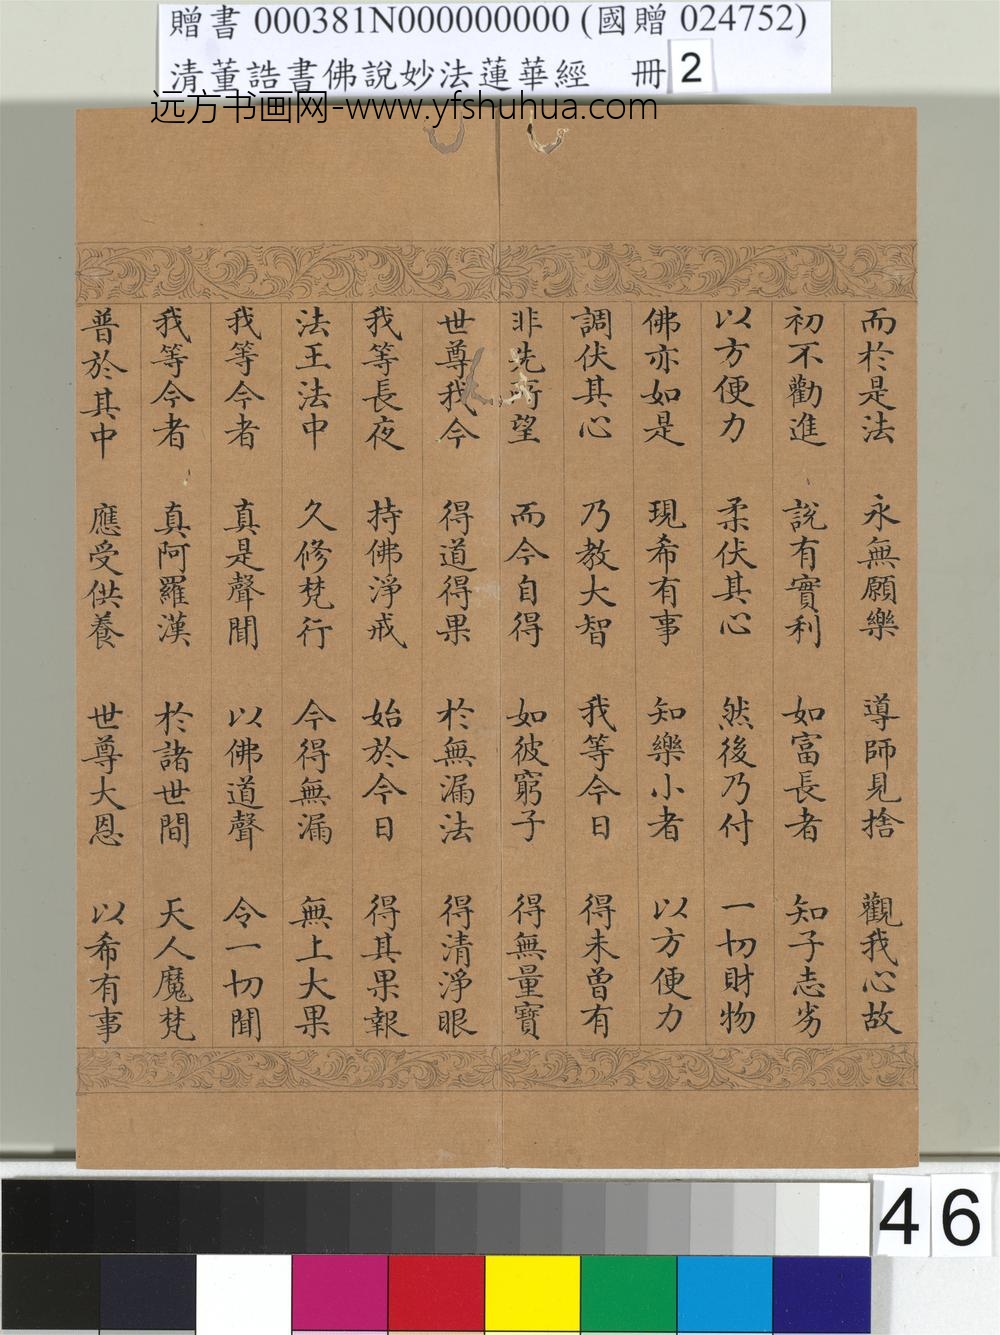 贈書 000381N000000000 (國贈 024752)
清董誥書佛說妙法蓮華經 冊 2
远方书画网-www.yfshuhua.com
而於是法 永無願樂 導師見捨 觀我心故
初不勸進 說有實利 如富長者 知子志劣
以方便力 柔伏其心 然後乃付 一切財物
佛亦如是 現希有事 知樂小者 以方便力
調伏其心 乃教大智 我等今日 得未曾有
非先所望 而今自得 如彼窮子 得無量寶
世尊我今 得道得果 於無漏法 得清淨眼
我等長夜 持佛淨戒 始於今日 得其果報
法王法中 久修梵行 今得無漏 無上大果
我等今者 真是聲聞 以佛道聲 令一切聞
我等今者 真阿羅漢 於諸世間 天人魔梵
普於其中 應受供養 世尊大恩 以希有事
46